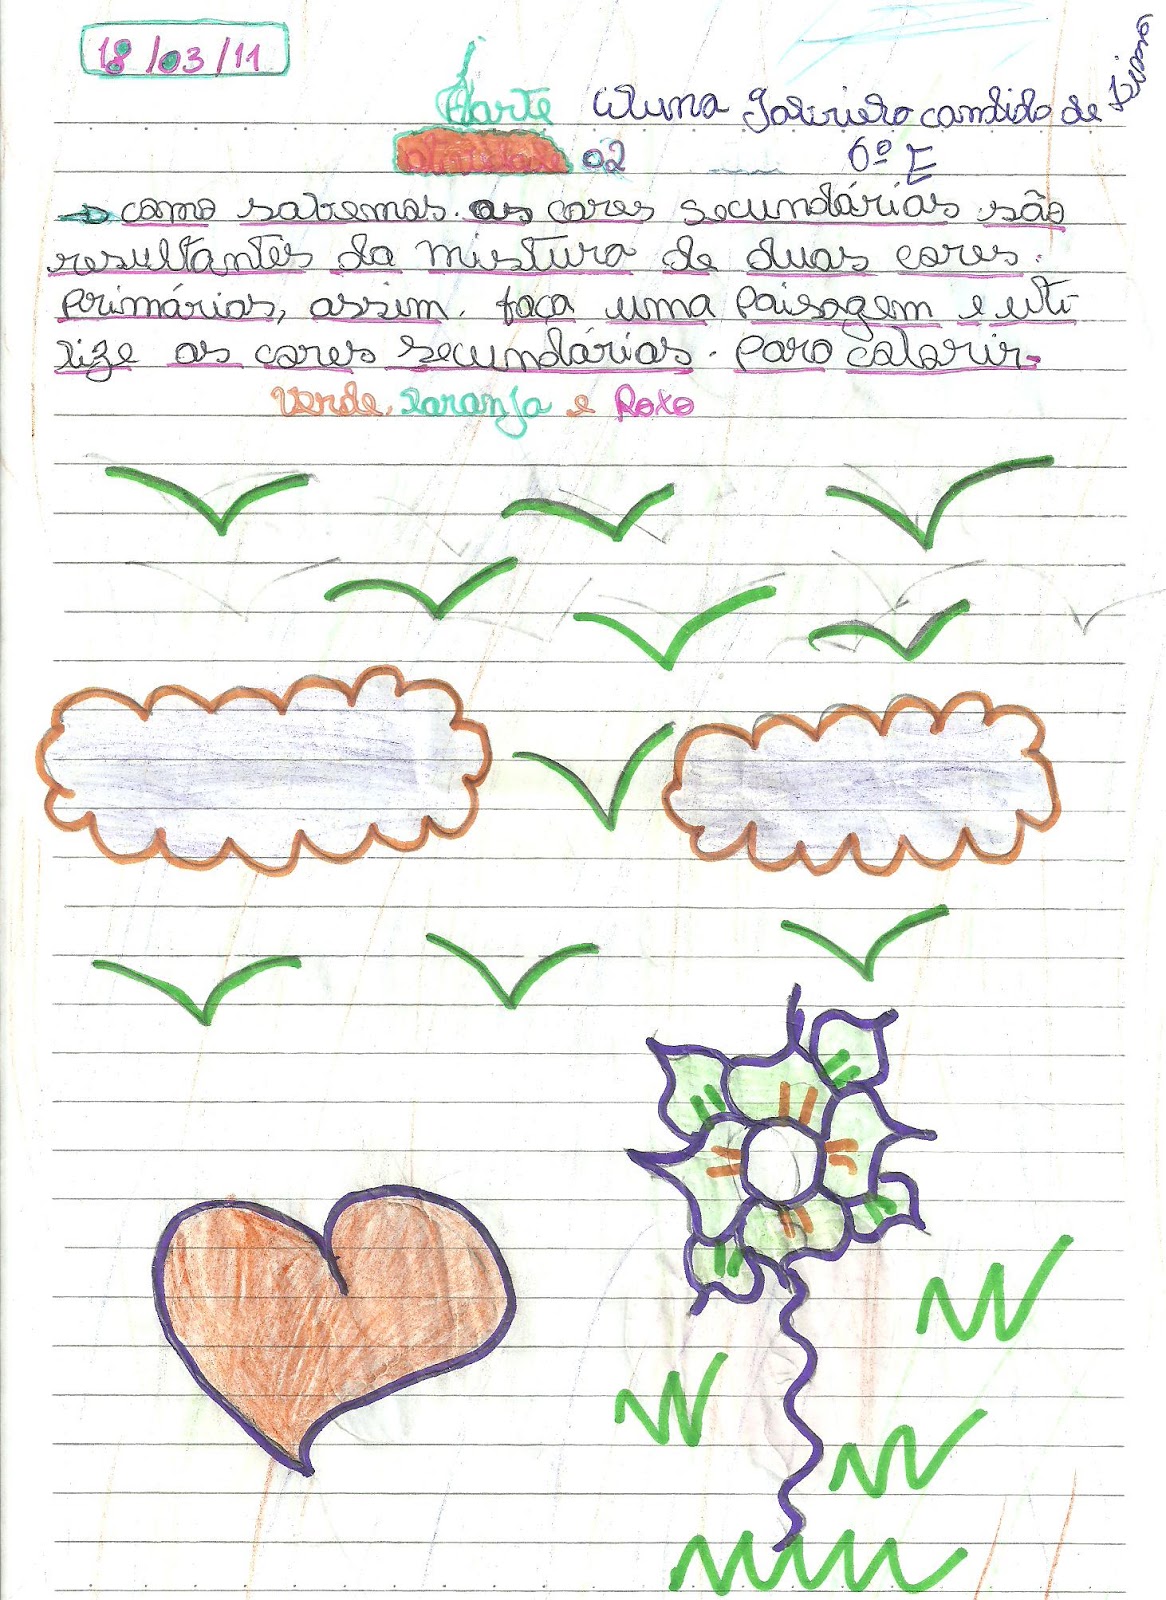 18/03/11
Arte Aluna Gabriela candido de Lima
atividade 02 6º E
como sabemos. as cores secundárias são
resultantes da mistura de duas cores.
primárias, assim. faça uma paisagem e uti-
lize as cores secundárias. para colorir.
Verde, laranja e Roxo